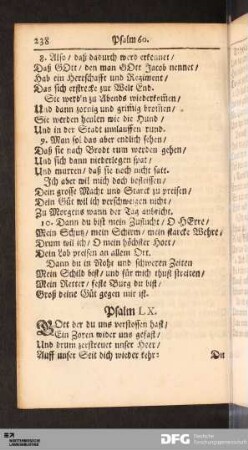 238
Psalm 60.
8. Also/ daß dadurch werd erkennet/
Daß GOtt/ den man GOtt Jacob nennet/
Hab ein Herrschafft und Regiment/
Das sich erstreckt zur Welt End.
Sie werd'n zu Abends wiederkom̃en/
Und dann zornig und grimmig brom̃en/
Sie werden heulen wie die Hund/
Und in der Stadt umlauffen rund.
9. Man sol das aber endlich sehen/
Daß sie nach Brodt rum werden gehen/
Und sich dann niederlegen spat/
Und murren/ daß sie noch nicht satt.
Ich aber will mich doch befleissen/
Dein grosse Macht und Starck zu preisen/
Dein Güt will ich verschweigen nicht/
Zu Morgens wann der Tag anbricht.
10. Dann du bist mein Zuflucht/ O HErre/
Mein Schutz/ mein Schirm/ mein starcke Wehre/
Drum wil ich/ O mein höchster Hort/
Dein Lob preisen an allem Ort.
Dann du in Noht und schweren Zeiten
Mein Schild bist/ und für mich thust streiten/
Mein Retter/ feste Burg du bist/
Groß deine Güt gegen mir ist.
Psalm LX.
GOtt der du uns verstossen hast/
Ein Zoren wider uns gefast/
Und drum zerstreuet unser Heer/
Auff unser Seit dich wieder kehr:
DFG Deutsche
Forschungsgemeinschaft